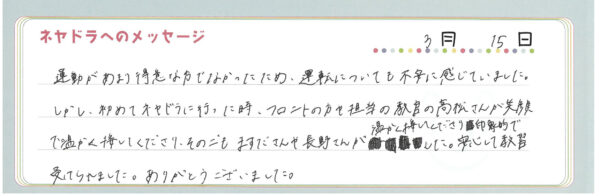 ネヤドラへのメッセージ
3月 15日
運動があまり得意な方でなかったため、運転についても不安に感じていました。
しかし、初めてネヤドラに行った時、フロントの方や担当の教官の高松さんが笑顔
で温かく接してくださり、そのごもますださんや長野さんが
温かく接してくださり印象的で
した。安心して教習
受けられました。ありがとうございました。